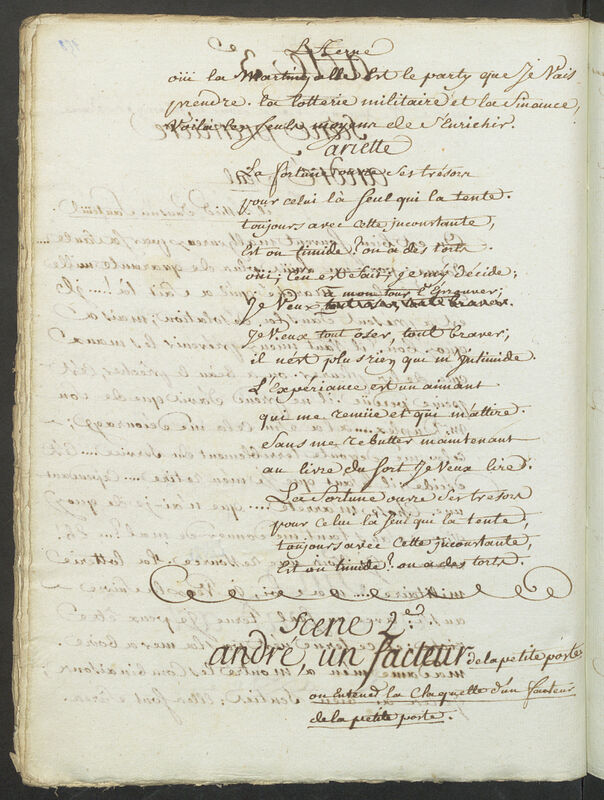 Le Terne
oüi la Martingalle est le party que je vais
prendre. la lotterie militaire et la finance,
Voila les seuls moyens de s'enrichir.
ariette
La fortune ouvre ses trésors
pour celui la seul qui la tente.
toujours avec cette jnconstante,
Est on timide? on a des torts.
oüi; c'en est fait, je my décide;
je Veux à mon tour l'éprouver;
je Veux tout oser, tout braver;
il n'est plus rien qui m'jntimide.
L'Expériance est un aimant
qui me remüe et qui m'attire.
sans me rebutter maintenant
au livre du sort je Veux lire.
La Fortune ouvre ses tresors
pour celui la seul qui la tente,
toujours avec cette jnconstante,
Est on timide? on a des torts.
Scene 2e.
andré, un facteur de la petite poste
on entend la Claquette d'un facteur
de la petite poste.